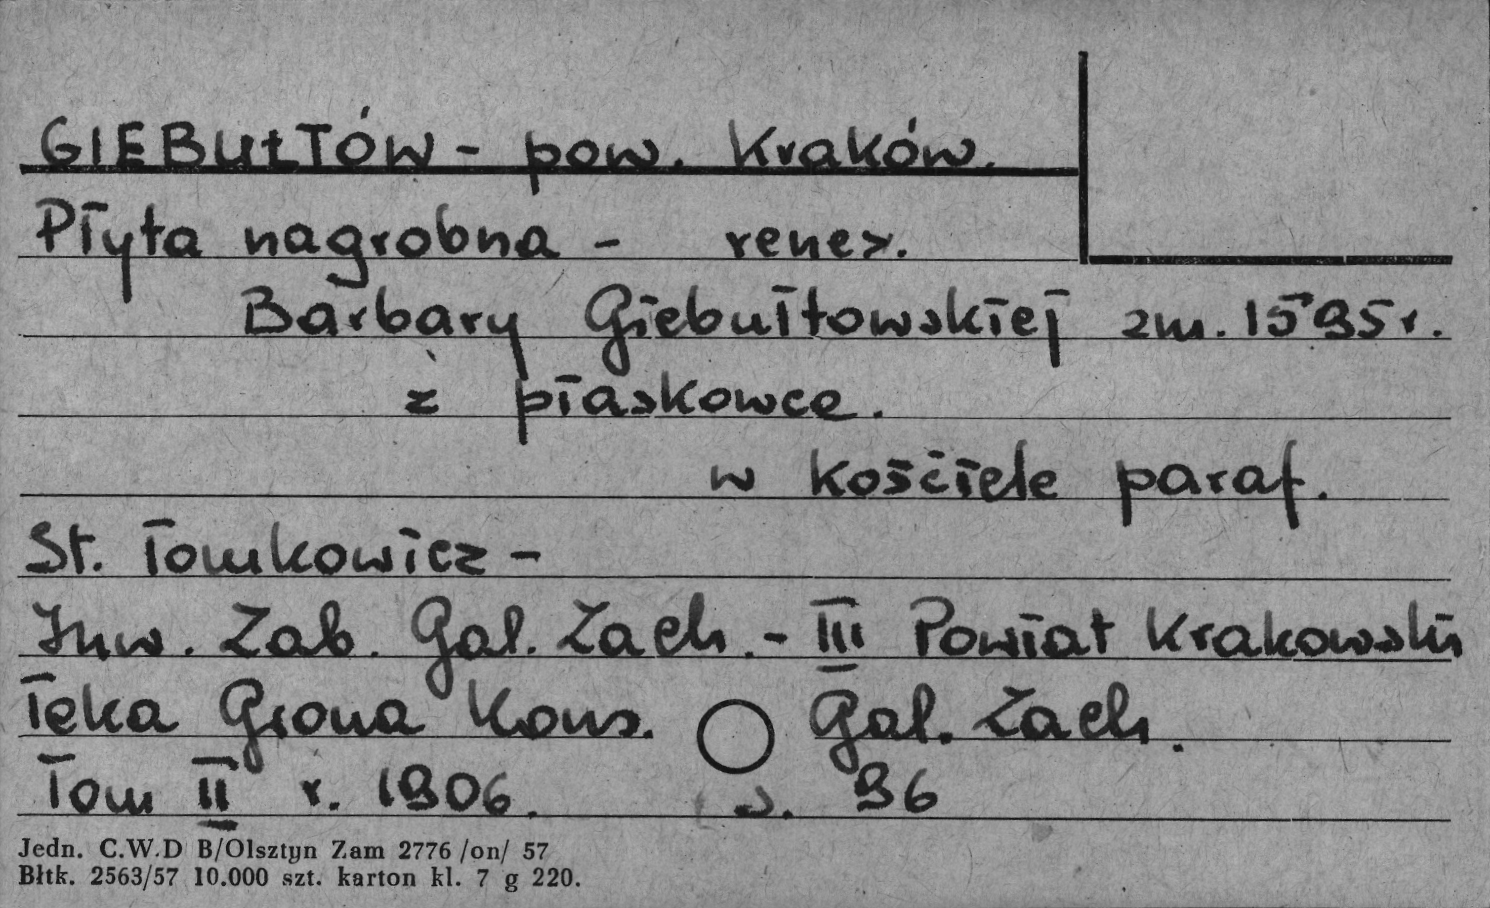 GIEBUŁTÓW - pow. Kraków.
Płyta nagrobna - renes.
Barbary Giebułtowskiej zm. 1595 r.
z piaskowca.
w kościele paraf.
St. Tomkowicz -
Inw. Zab. Gal. Zach. - III Powiat Krakowski
Teka Grona Kons. Gal. Zach.
Tom II r. 1906. s. 96
Jedn. C.W.D B/Olsztyn Zam 2776 /on/ 57
Błtk. 2563/57 10.000 szt. karton kl. 7 g 220.